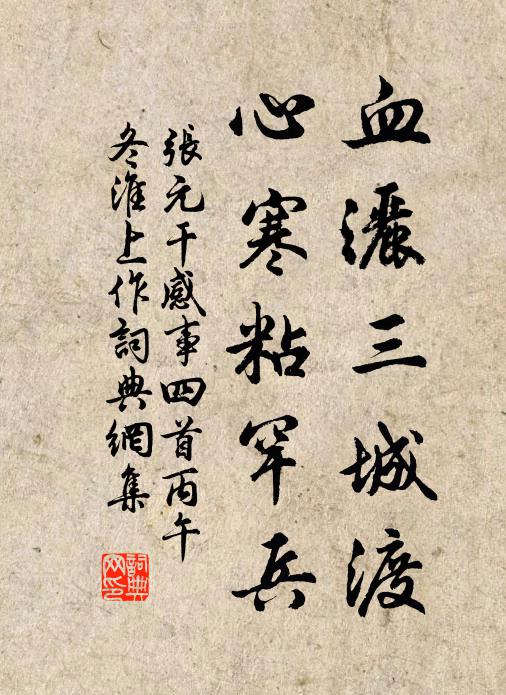 血灑三城渡
心寒粘罕兵
張元干感事四首丙午
冬淮上作詞典網集
詞典
网印